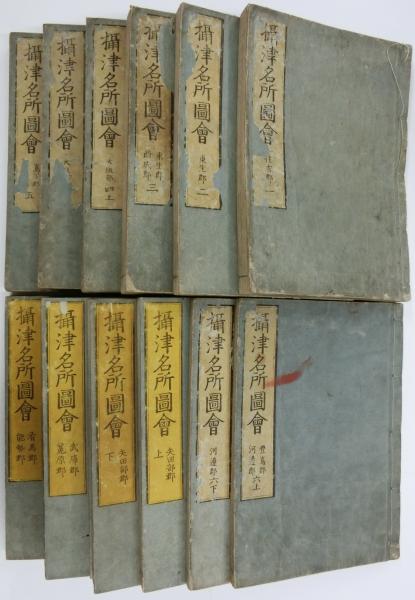 攝津名所圖會
住吉郡 一
攝津名所圖會
東生郡 二
攝津名所圖會
東生郡
西成郡 三
攝津名所圖會
大坂部 四上
攝津名所圖會
大
攝津名所圖會
島
郡 五
攝津名所圖會
豊島郡
河邊郡 六上
攝津名所圖會
河邊郡 六下
攝津名所圖會
矢田部郡
上
攝津名所圖會
矢田部郡
下
攝津名所圖會
武庫郡
菟原郡
攝津名所圖會
有馬郡
能勢郡